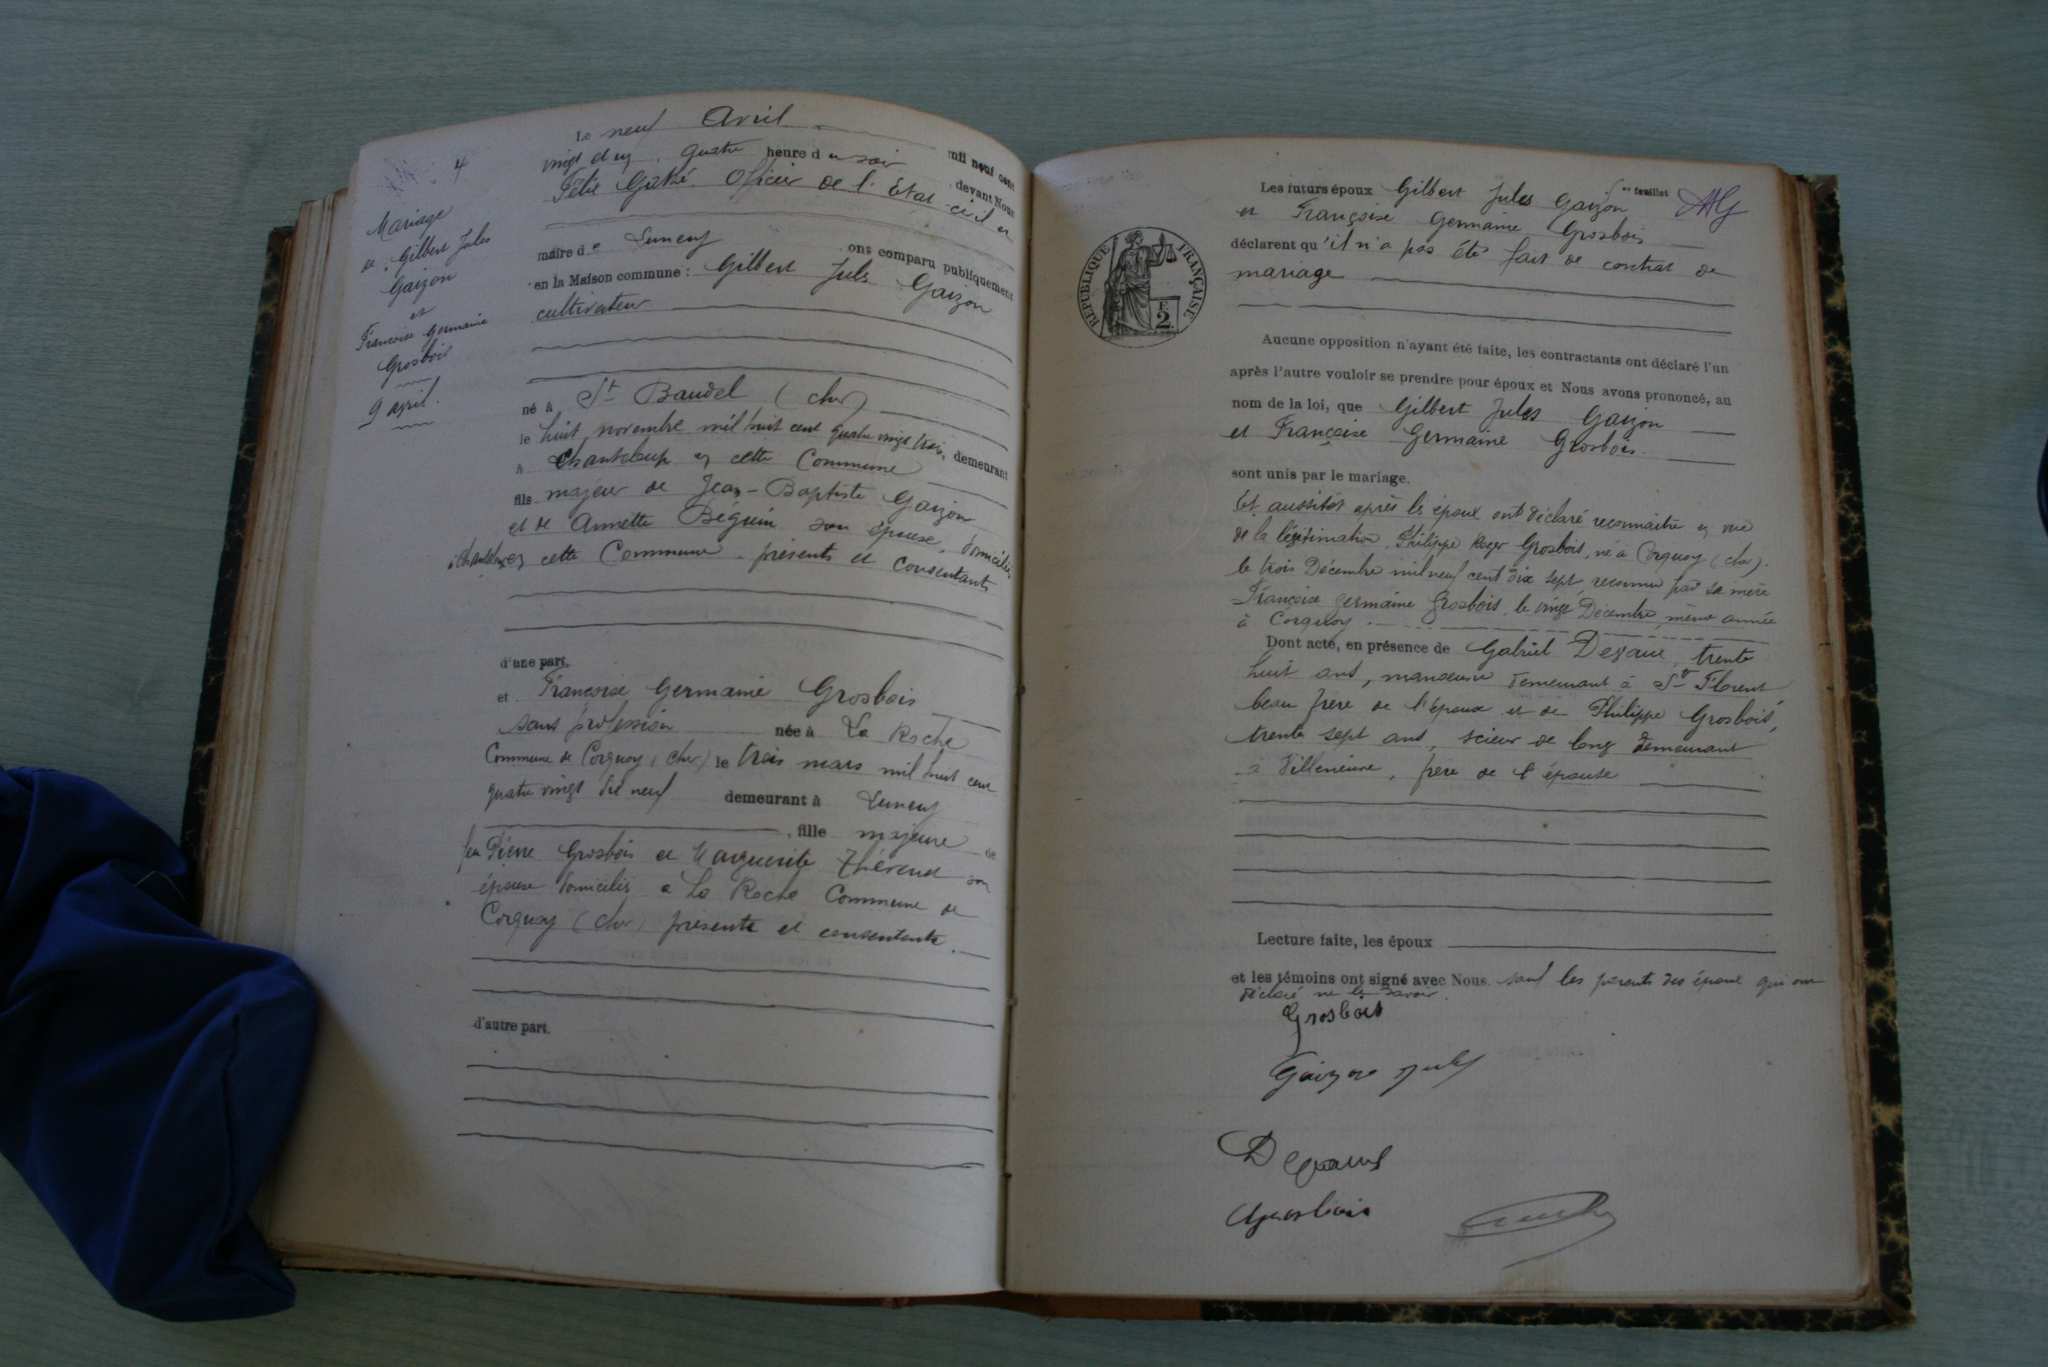 4
Mariage
de Gilbert Jules
Gaizon
et
Françoise Germaine
Grosbois
9 avril.
Le neuf Avril mil neuf cent
vingt et un, quatre heure du soir devant Nous
Officier de l'Etat civil en
maire de Lunery ont comparu publiquement
en la Maison commune : Gilbert Jules Gaizon
cultivateur
né à St Baudel (cher)
le huit novembre mil huit cent quatre vingt trois, demeurant
à Chanteloup en cette Commune
fils majeur de Jean-Baptiste Gaizon
et de Annette Béguin son épouse, domiciliés
à Chanteloup en cette Commune. présents et consentants
d'une part,
et Françoise Germaine Grosbois
sans profession née à La Roche
Commune de Corquoy (cher) le trois mars mil huit cent
quatre vingt dix neuf demeurant à Lunery
, fille majeure de
feu Pierre Grosbois et Marguerite son
épouse domiciliée à La Roche Commune de
Corquoy (cher) présente et consentante.
d'autre part.
RÉPUBLIQUE FRANÇAISE
E
2
Les futurs époux Gilbert Jules Gaizon feuillet
et Françoise Germaine Grosbois
déclarent qu'il n'a pas été fait de contrat de
mariage
Aucune opposition n'ayant été faite, les contractants ont déclaré l'un
après l'autre vouloir se prendre pour époux et Nous avons prononcé, au
nom de la loi, que Gilbert Jules Gaizon
et Françoise Germaine Grosbois.
sont unis par le mariage.
Et aussitôt après les époux ont déclaré reconnaitre en vue
de la légitimation Philippe Roger Grosbois, né à Corquoy (cher).
le trois Décembre mil neuf cent dix sept reconnu par sa mère
Françoise Germaine Grosbois, le vingt Décembre même année
à Corquoy
Dont acte, en présence de Gabriel trente
huit ans, manoeuvre demeurant à St Florent
beau frère de l'époux et de Philippe Grosbois,
trente sept ans, scieur de long demeurant
à Villeneuve, frère de l'épouse
Lecture faite, les époux
et les témoins ont signé avec Nous. sauf les parents des époux qui ont
déclaré ne le savoir.
Grosbois
Gaizon Jules
Grosbois